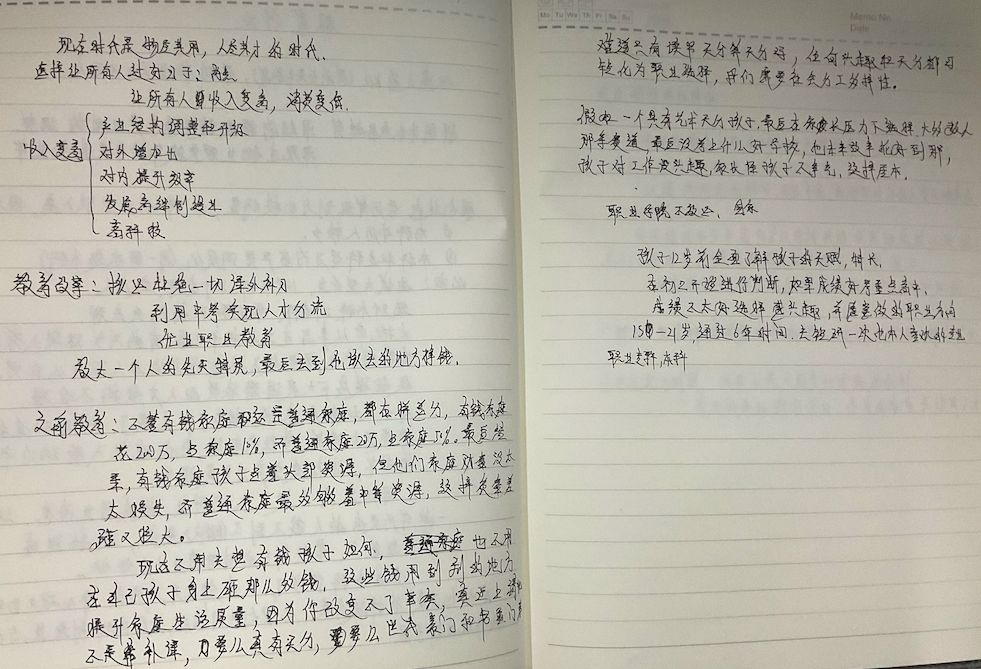 现在时代是物尽其用，人尽其才的时代.
选择让所有人过好日子：两点.
让所有人群收入变高，消费变低.
收入变高
产业结构调整和升级
对外增加出
对内提升效率
发展高端创造业
高科技
教育改革：杜绝一切课外补习
利用中考实现人才分流
优化职业教育
放大一个人的先天特质，最后去到他该去的地方挣钱.
之前教育：不管有钱家庭还是普通家庭，都在拼差分，有钱家庭
花200万，占家庭10%，而普通家庭20万，占家庭50%。最后结
果，有钱家庭孩子占着头部资源，但他们家庭财产没太
大损失，而普通家庭最多够着中等资源，这样贫富差
距又拉大。
现在不用去想有钱孩子如何，也不用
在自己孩子身上砸那么多钱，这些钱用到别的地方
提升家庭生活质量，因为你改变不了事实，真正上清北
不是靠补课，要么真有天分，要么世代豪门和书香门
Mo Tu We Th Fr Sa Su
Memo No.
Date
难道只有读书天分算天分吗，任何兴趣和天分都可
转化为职业选择，我们需要社会分工多样性。
假如一个具有艺术天分孩子，最后在家长压力下选择大多数人
那条赛道，最后没考上什么好学校，
孩子对工作没兴趣，家长怪孩子不争气，
职业学院
孩子12岁前全面了解孩子的天赋，特长.
在初三开始进行判断，如果成绩好考重点高中.
成绩不太好选择感兴趣，并愿意做的职业方向
15-21岁，通过6年时间，去钻研一次
职业专科，本科